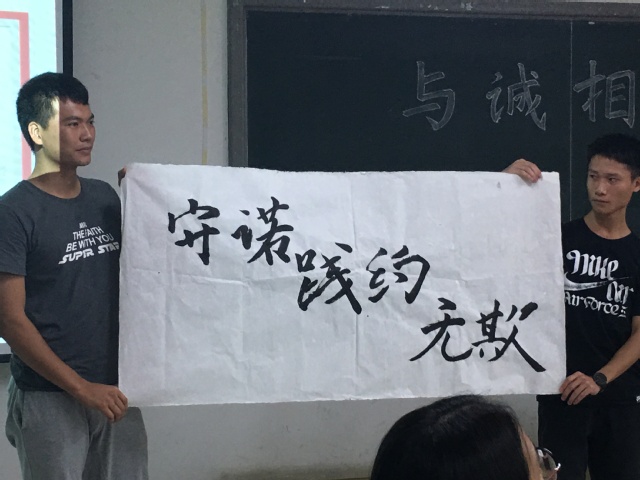 与诚相
守诺
践约
无欺
THE FAITH
BE WITH YOU
SUPER STAR
Nike
Air
Air Force